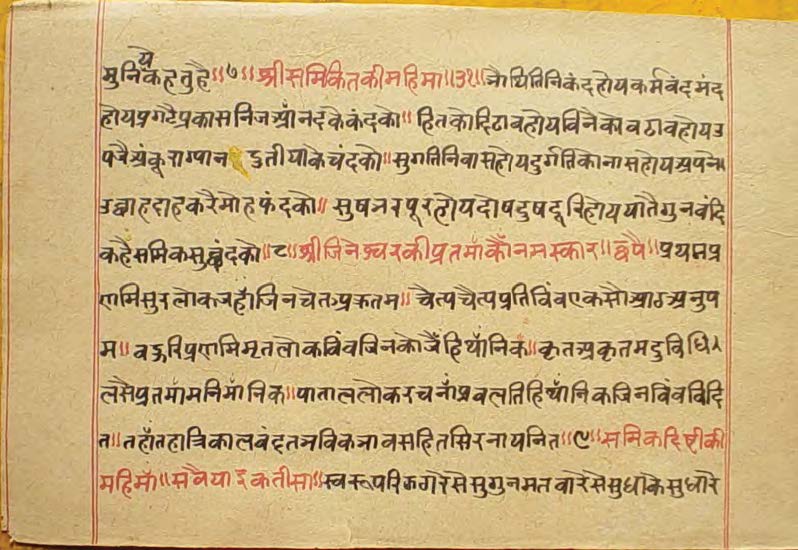 मुनि कहतु है॥७॥ श्रीसमिकितकीमहिमा॥३१॥ होयकर्मबंदमंद
होयप्रगटैप्रकासनिजआंनदकेकंदको॥ हितको होयविनैको बढावहोयउ
पजैअंकूरग्यान दुतीयाकेचंदको॥ सुगतिनिवासहोयदुर्गतिकोनासहोयअपनो
उछाहदाहकरैमोहफंदको॥ सुषभरपूरहोयदोषदुषदूरिहोययातैगुनवंदि
कहैसमिकसुछंदको॥८॥ श्रीजिनेश्वरकीप्रतमांकौंनमस्कार॥ छपै॥ प्रथमप्र
णमिसुरलोकजहांजिनचेत अक्रतम॥ चैत्यचैत्यप्रतिबिंबएकसौआठअनुप
म॥ बहुरिप्रणमिमृतलोकबिंबजिनके थांनिक॥ कृतअकृतमदुविधि
लसैप्रतमांमनिमांनिक॥ पाताललोकरचनांप्रबलतिहिथांनिकजिनबिंबबिदि
त॥ तहांतहात्रिकालबंदतभविकभावसहितसिरनायनित॥९॥ समिकदिष्टीकी
महिमां॥ सवैयाइकतीसा॥ स्वरूपरिझवारेसेसुगुनमतवारेसेसुधाकेसुधारे